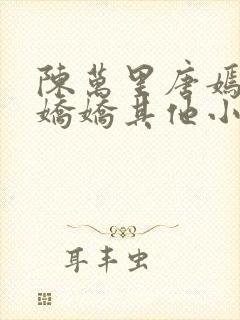 陳萬里唐嫣
嬌嬌其他小
耳丰虫